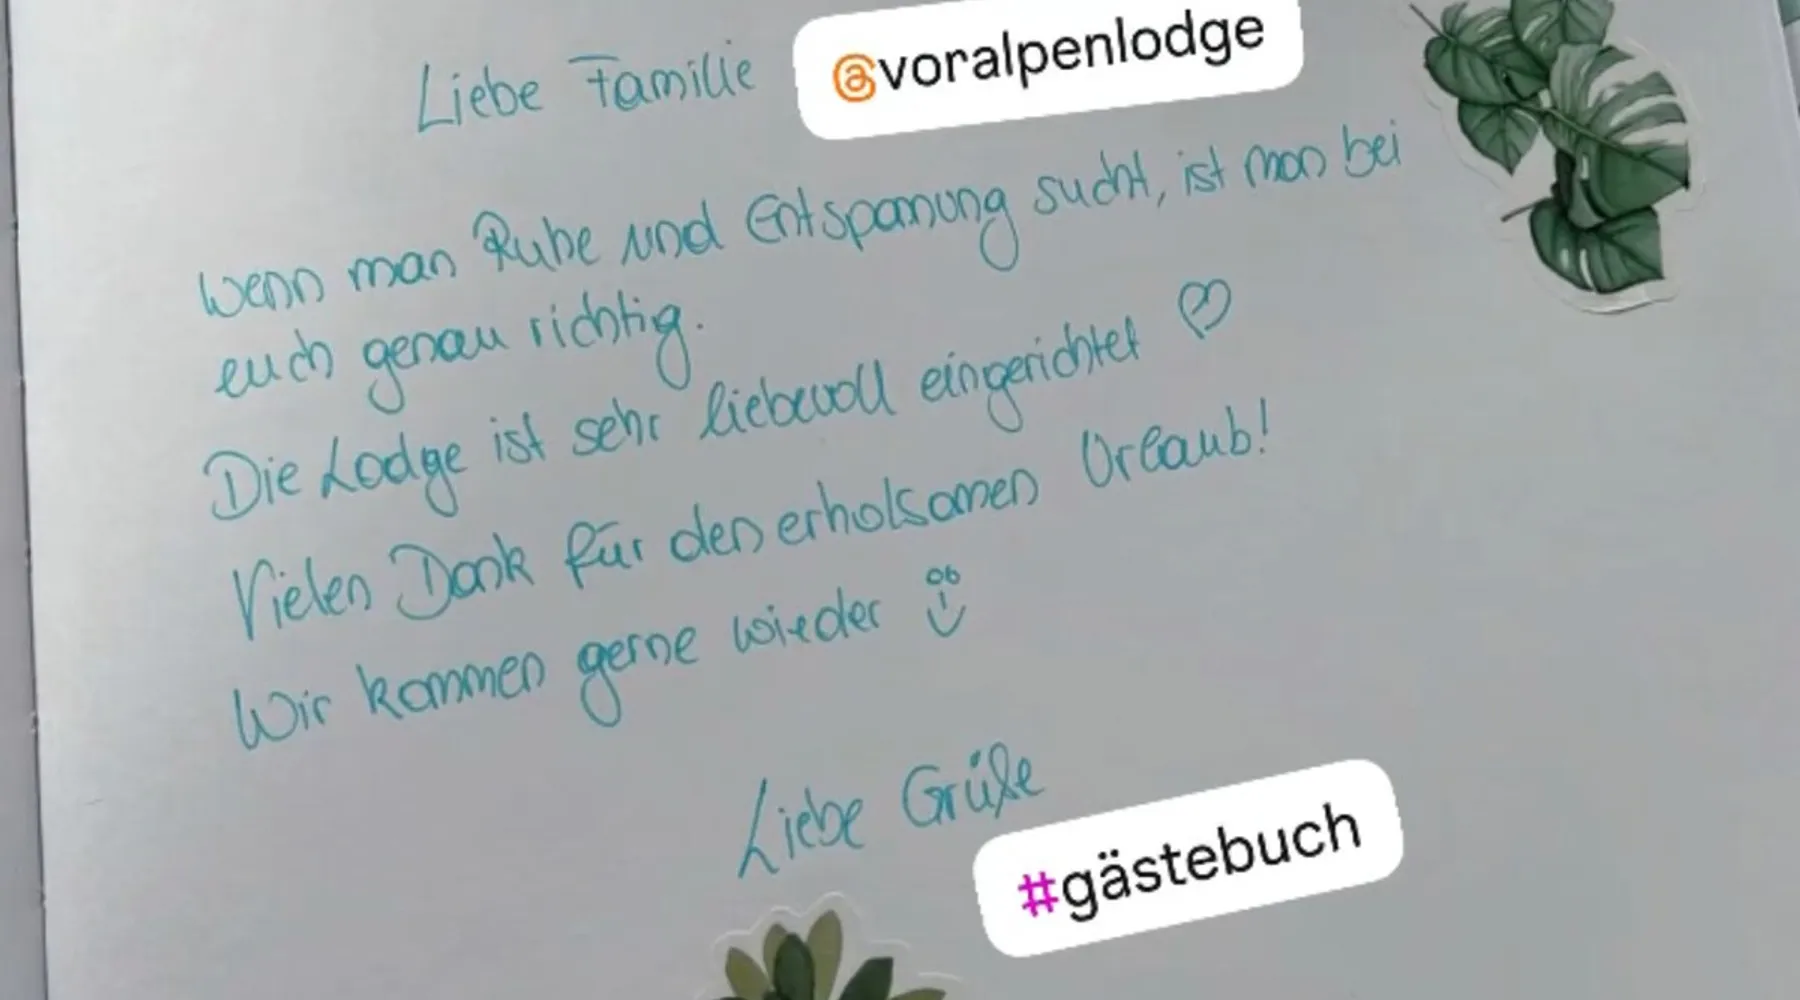 Liebe Familie @voralpenlodge
wenn man Ruhe und Entspannung sucht, ist man bei
euch genau richtig.
Die Lodge ist sehr liebevoll eingerichtet ♡
Vielen Dank für den erholsamen Urlaub!
Wir kommen gerne wieder
Liebe Grüße
#gästebuch